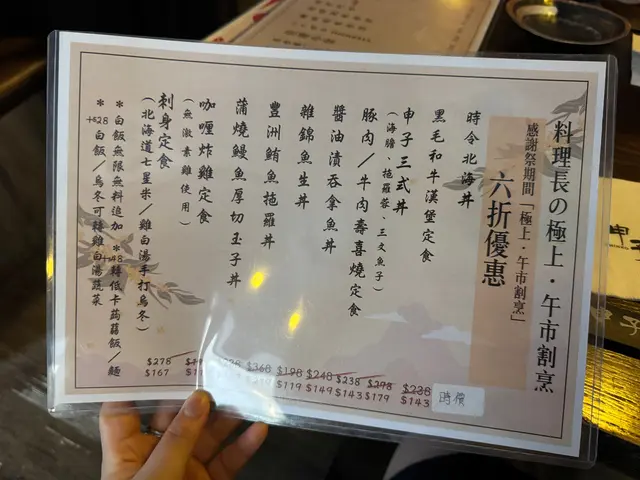 料理長の極上．午市割烹
感謝祭期間「極上．午市割烹」
六折優惠
時令北海丼
時價
黑毛和牛漢堡定食
$238
$143
申子三式丼
(海膽、拖羅蓉、三文魚子)
$298
$179
豚肉／牛肉壽喜燒定食
$238
$143
醬油漬吞拿魚丼
$248
$149
雜錦魚生丼
$198
$119
豐洲鮪魚拖羅丼
$368
蒲燒鰻魚厚切玉子丼
咖喱炸雞定食
(無激素雞使用)
刺身定食
$278
$167
(北海道七星米／雞白湯手打烏冬)
*白飯無限無料追加 *+$8轉低卡蒟蒻飯／麵
*+$28白飯／烏冬可轉雞白湯蔬菜